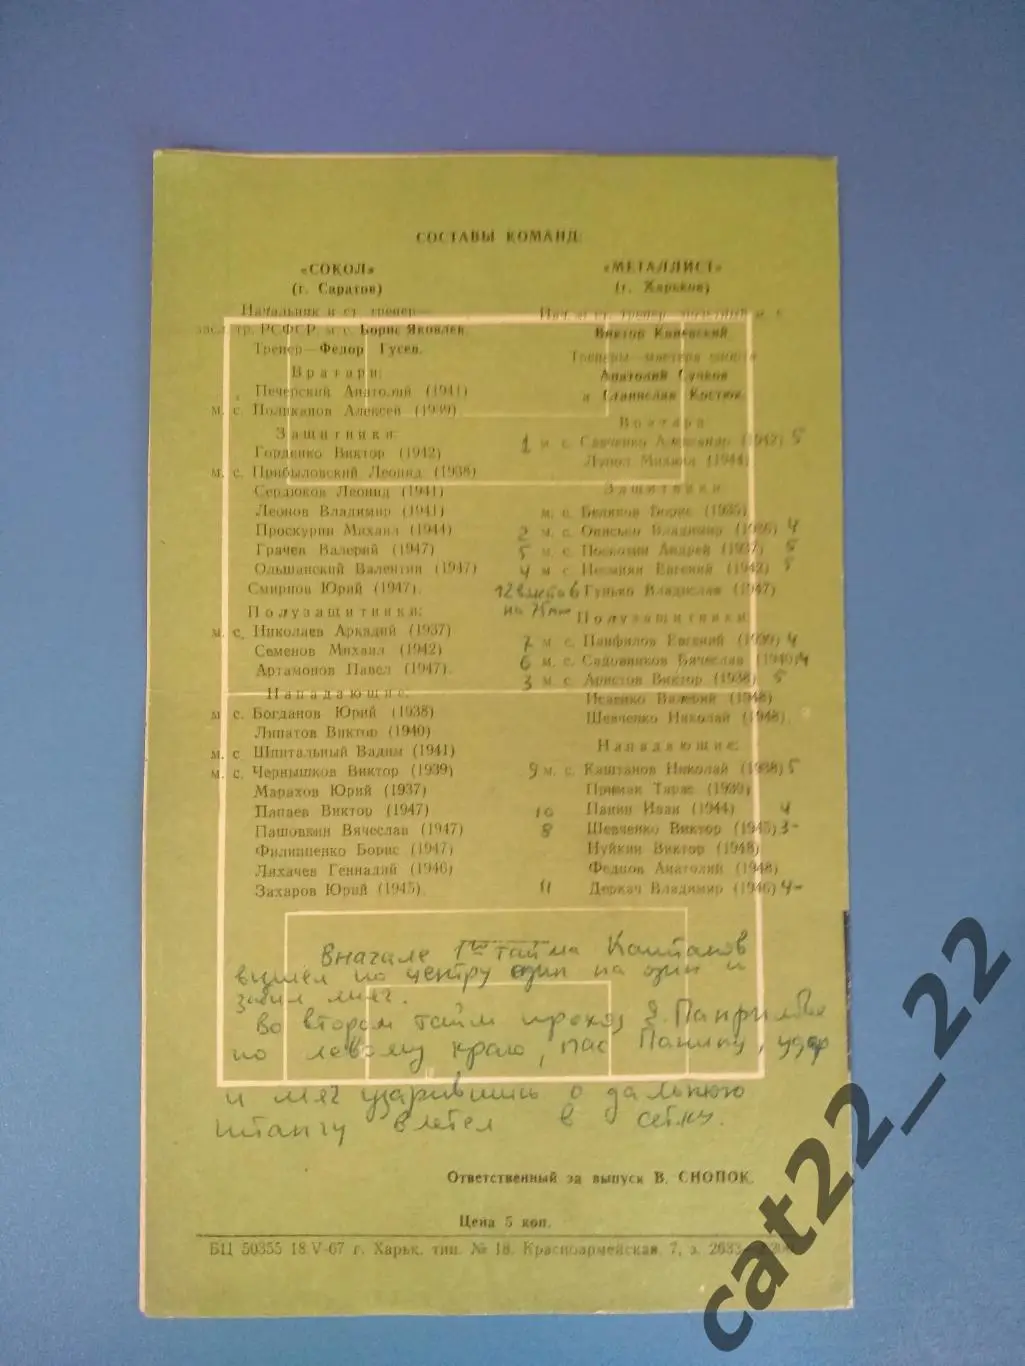 СОСТАВЫ КОМАНД:
«СОКОЛ»
(г. Саратов)
Начальник и ст. тренер—
засл. тр. РСФСР, м. с. Борис Яковлев.
Тренер—Федор Гусев.
Вратари:
Печерский Анатолий (1941)
м. с. Поликанов Алексей (1939)
Защитники:
Горденко Виктор (1942)
м. с. Прибыловский Леонид (1938)
Сердюков Леонид (1941)
Леонов Владимир (1941)
Проскурин Михаил (1944)
Грачев Валерий (1947)
Ольшанский Валентин (1947)
Смирнов Юрий (1947).
Полузащитники:
м. с. Николаев Аркадий (1937)
Семенов Михаил (1942)
Артамонов Павел (1947).
Нападающие:
м. с. Богданов Юрий (1938)
Липатов Виктор (1940)
м. с. Шпитальный Вадим (1941)
м. с. Чернышков Виктор (1939)
Марахов Юрий (1937)
Папаев Виктор (1947)
Пашовкин Вячеслав (1947)
Филиппенко Борис (1947)
Лихачев Геннадий (1946)
Захаров Юрий (1945).
«МЕТАЛЛИСТ»
(г. Харьков)
Нач. и ст. тренер, м. с.
Виктор Каневский.
Тренеры—мастера спорта
Анатолий Сучков
и Станислав Костюк.
Вратари
1 м. с. Савченко Александр (1942) 5
Лупол Михаил (1944)
Защитники
м. с. Беликов Борис (1935)
2 м. с. Онисько Владимир (1936) 4
5 м. с. Поскотин Андрей (1937) 5
4 м. с. Несмиян Евгений (1942) 5
12 вместо 6 Гунько Владислав (1947)
на 75 мин
Полузащитники
7 м. с. Панфилов Евгений (1939) 4
6 м. с. Садовников Вячеслав (1940) 4
3 м. с. Аристов Виктор (1938) 5
Исаенко Валерий (1948)
Шевченко Николай (1948).
Нападающие:
9 м. с. Каштанов Николай (1938) 5
Примак Тарас (1939)
10 Панин Иван (1944) 4
8 Шевченко Виктор (1945) 3-
Нуйкин Виктор (1948)
Федцов Анатолий (1948)
11 Деркач Владимир (1946) 4-
Вначале 1го тайма Каштанов
вышел по центру один на один и
забил мяч.
Во втором тайм проход Панфилова
по левому краю, пас Панину, удар
и мяч ударившись о дальнюю
штангу влетел в сетку.
Ответственный за выпуск В. СНОПОК.
Цена 5 коп.
БЦ 50355 18.V-67 г. Харьк. тип. № 18. Красноармейская, 7, з.
cat22_22